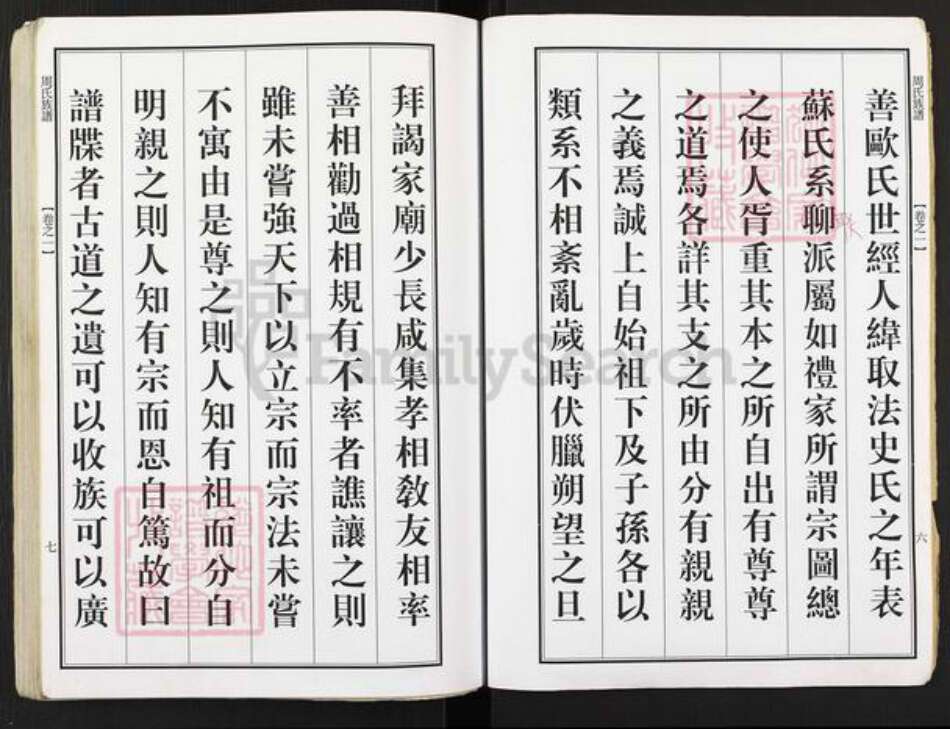 周氏族譜
【卷之一】
六
善歐氏世經人緯取法史氏之年表
蘇氏系聊派屬如禮家所謂宗圖總
之使人胥重其本之所自出有尊尊
之道焉各詳其支之所由分有親親
之義焉誠上自始祖下及子孫各以
類系不相紊亂歲時伏臘朔望之旦
拜謁家廟少長咸集孝相敎友相率
善相勸過相規有不率者譙讓之則
雖未嘗強天下以立宗而宗法未嘗
不寓由是尊之則人知有祖而分自
明親之則人知有宗而恩自篤故曰
譜牒者古道之遺可以收族可以廣
周氏族譜
【卷之一】
七
FamilySearch